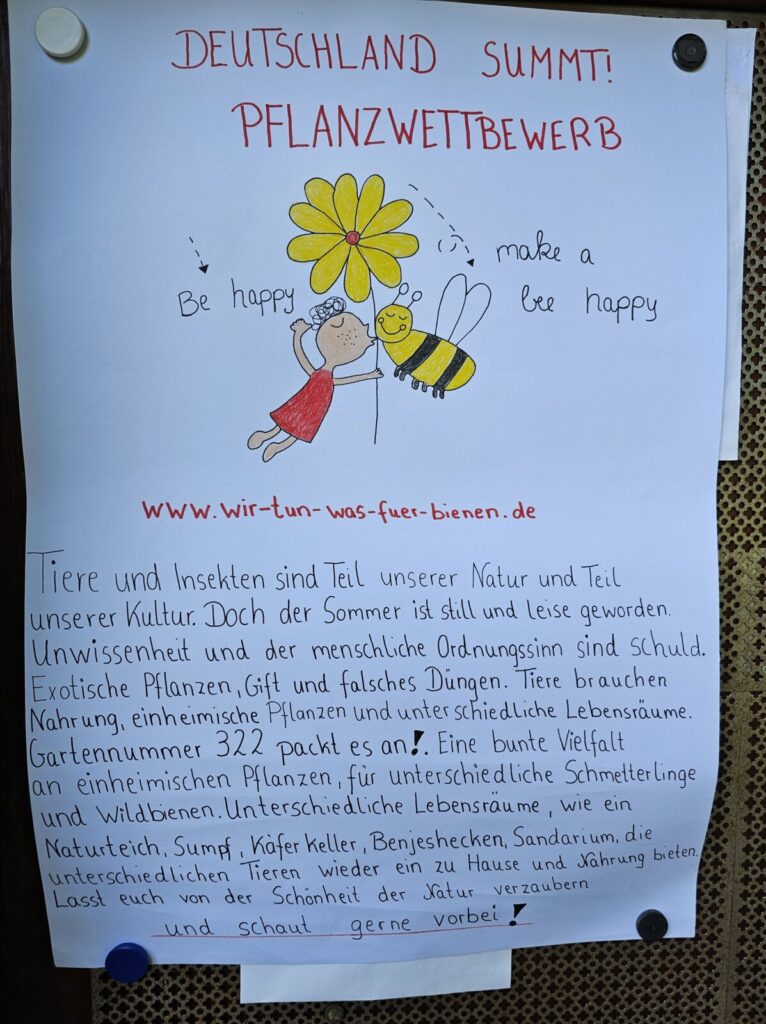 DEUTSCHLAND SUMMT!
PFLANZWETTBEWERB
Be happy
make a
bee happy
www.wir-tun-was-fuer-bienen.de
Tiere und Insekten sind Teil unserer Natur und Teil
unserer Kultur. Doch der Sommer ist still und leise geworden.
Unwissenheit und der menschliche Ordnungssinn sind schuld.
Exotische Pflanzen, Gift und falsches Düngen. Tiere brauchen
Nahrung, einheimische Pflanzen und unterschiedliche Lebensräume.
Gartennummer 322 packt es an!. Eine bunte Vielfalt
an einheimischen Pflanzen, für unterschiedliche Schmetterlinge
und Wildbienen. Unterschiedliche Lebensräume, wie ein
Naturteich, Sumpf, Käfer Keller, Benjeshecken, Sandarium, die
unterschiedlichen Tieren wieder ein zu Hause und Nahrung bieten.
Lasst euch von der Schönheit der Natur verzaubern
und schaut gerne vorbei!